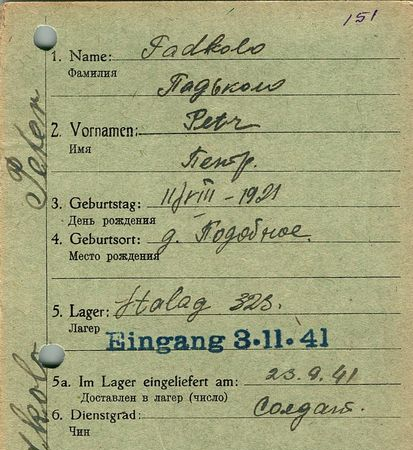 151
1. Name: Fadkolo
Фамилия
Падьколо
2. Vornamen: Petr
Имя
Петр.
3. Geburtstag: 11/VIII – 1921
День рождения
4. Geburtsort: д. Подобное.
Место рождения
5. Lager: Stalag 323.
Лагер
Eingang 3·11·41
5a. Im Lager eingeliefert am: 23.9.41
Доставлен в лагер (число)
6. Dienstgrad: Солдат.
Чин
Peter